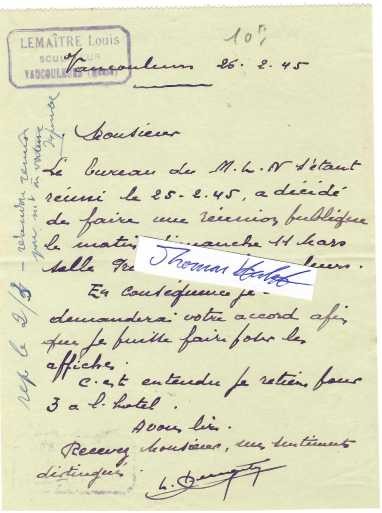 LEMAÎTRE Louis
SCULPTEUR
VAUCOULEURS (Meuse)
10%
Vaucouleurs 26. 2. 45
Monsieur
Le bureau du M.L.N s'étant
réuni le 25-2-45, a décidé
de faire une réunion publique
le matin dimanche 11 Mars
salle
Thomas
En conséquence je
demanderai votre accord afin
que je puisse faire faire les
affiches.
C'est entendu je retiens pour
3 à l'hotel.
à vous lire.
Recevez Monsieur, mes sentiments
distingués.
rep. le 2/3 - réunion